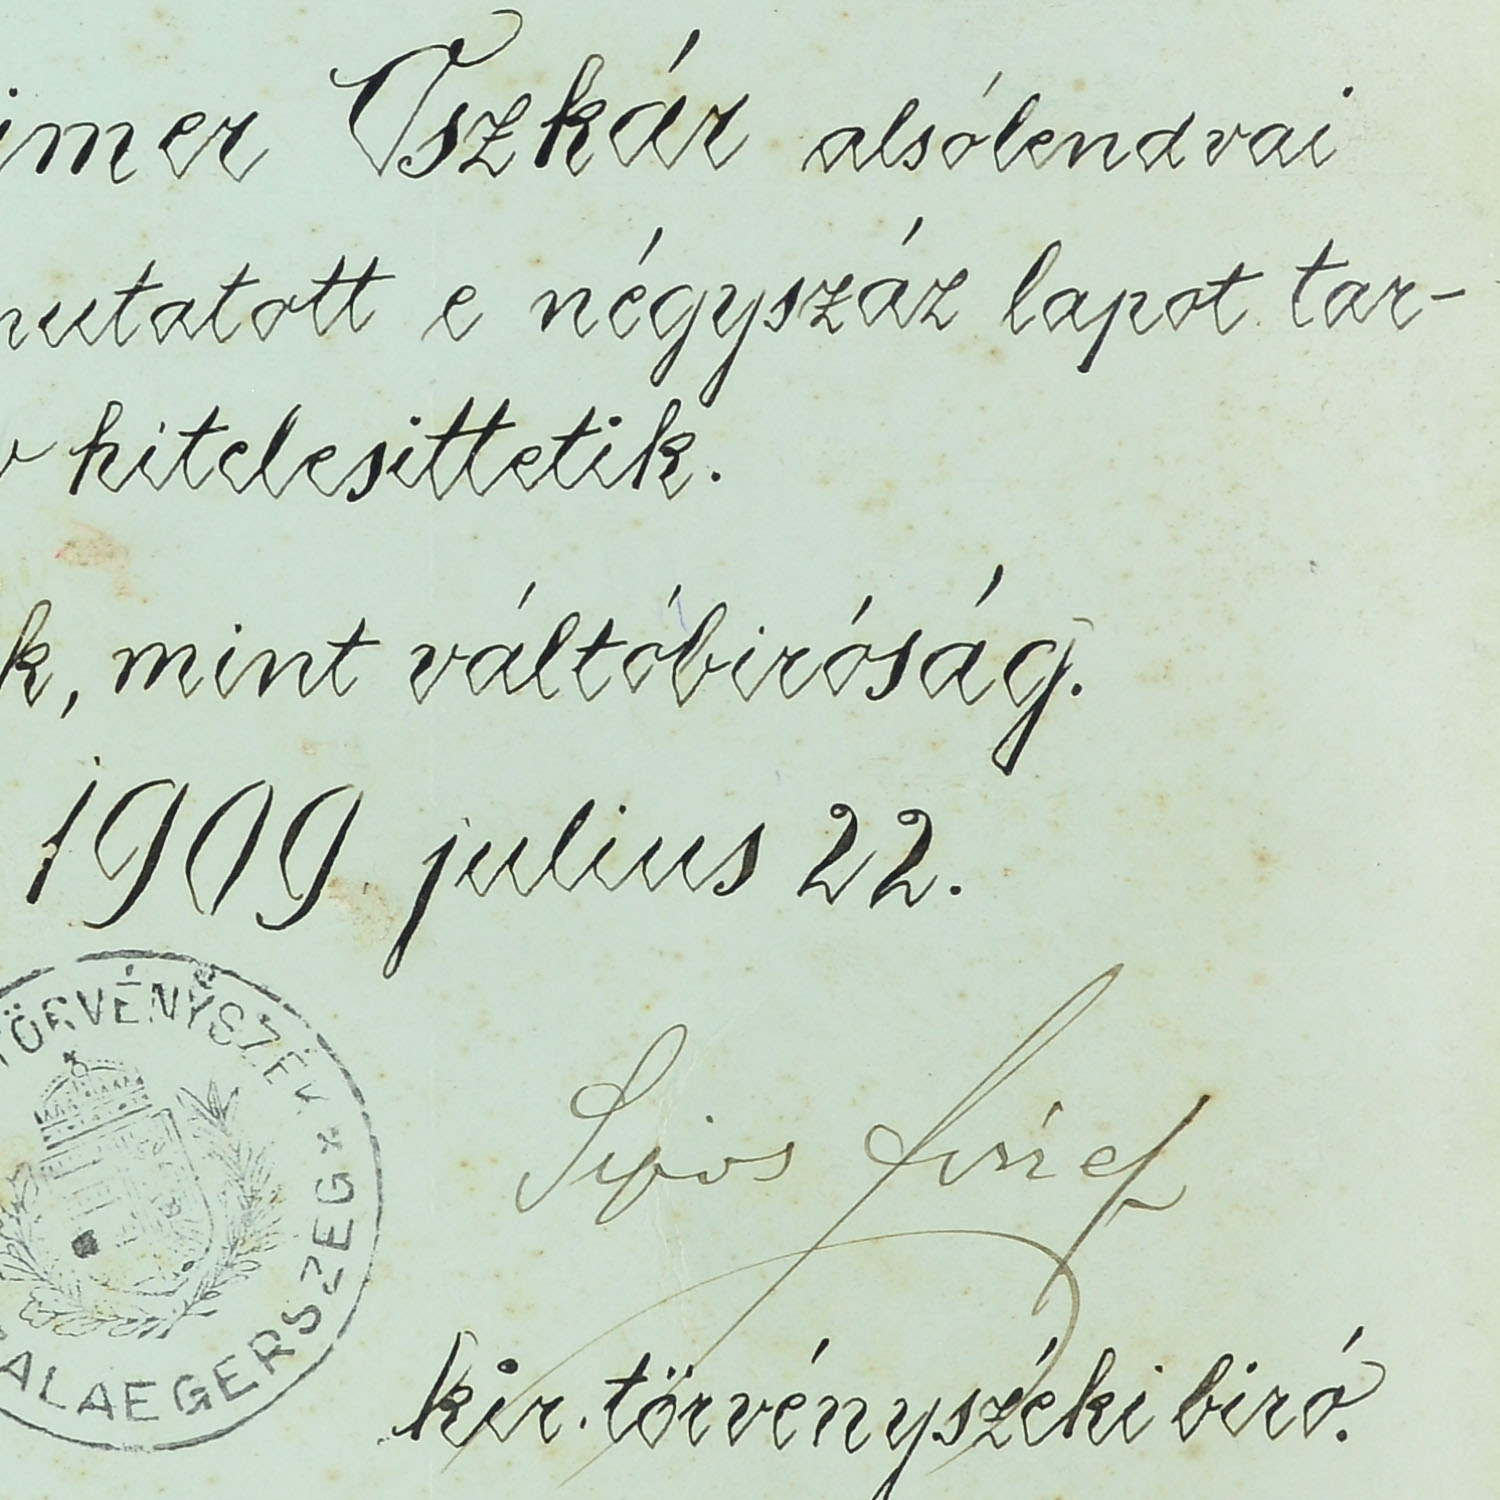 imer Oszkár alsólendvai
mutatott e négyszáz lapot tar-
hitelesittetik.
k, mint váltóbiróság.
1909 julius 22.
TÖRVÉNYSZÉK
ALAEGERSZEG
Sipos József
kir. törvényszéki biró.